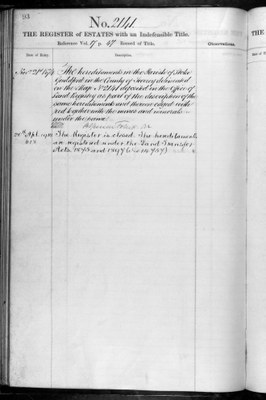 No. 2141.
THE REGISTER of ESTATES with an Indefeasible Title.
Reference Vol. 17 p. 67 Record of Title.
Date of Entry.
Description.
Observations.
The hereditaments in the Parish of Stoke
Guildford in the County of Surrey delineated
on the Map No 2141 deposited in the Office of
Land Registry as part of the description of the
same hereditaments and thereon edged with
red together with the mines and minerals
under the same
The Register is closed. The hereditaments
are registered under the Land Transfer
Acts 1875 and 1897